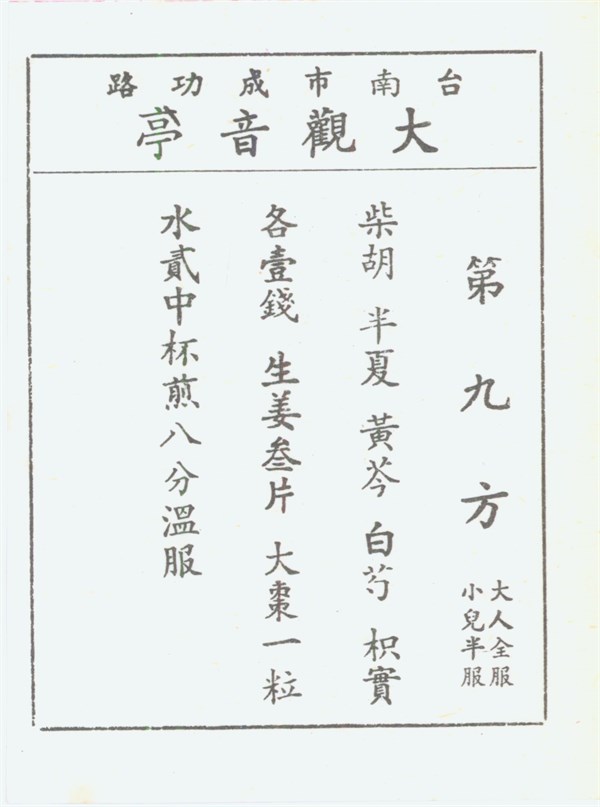 台南市成功路
大觀音亭
第九方
大人全服
小兒半服
柴胡 半夏 黃芩 白芍 枳實
各壹錢 生姜叁片 大棗一粒
水貳中杯煎八分溫服